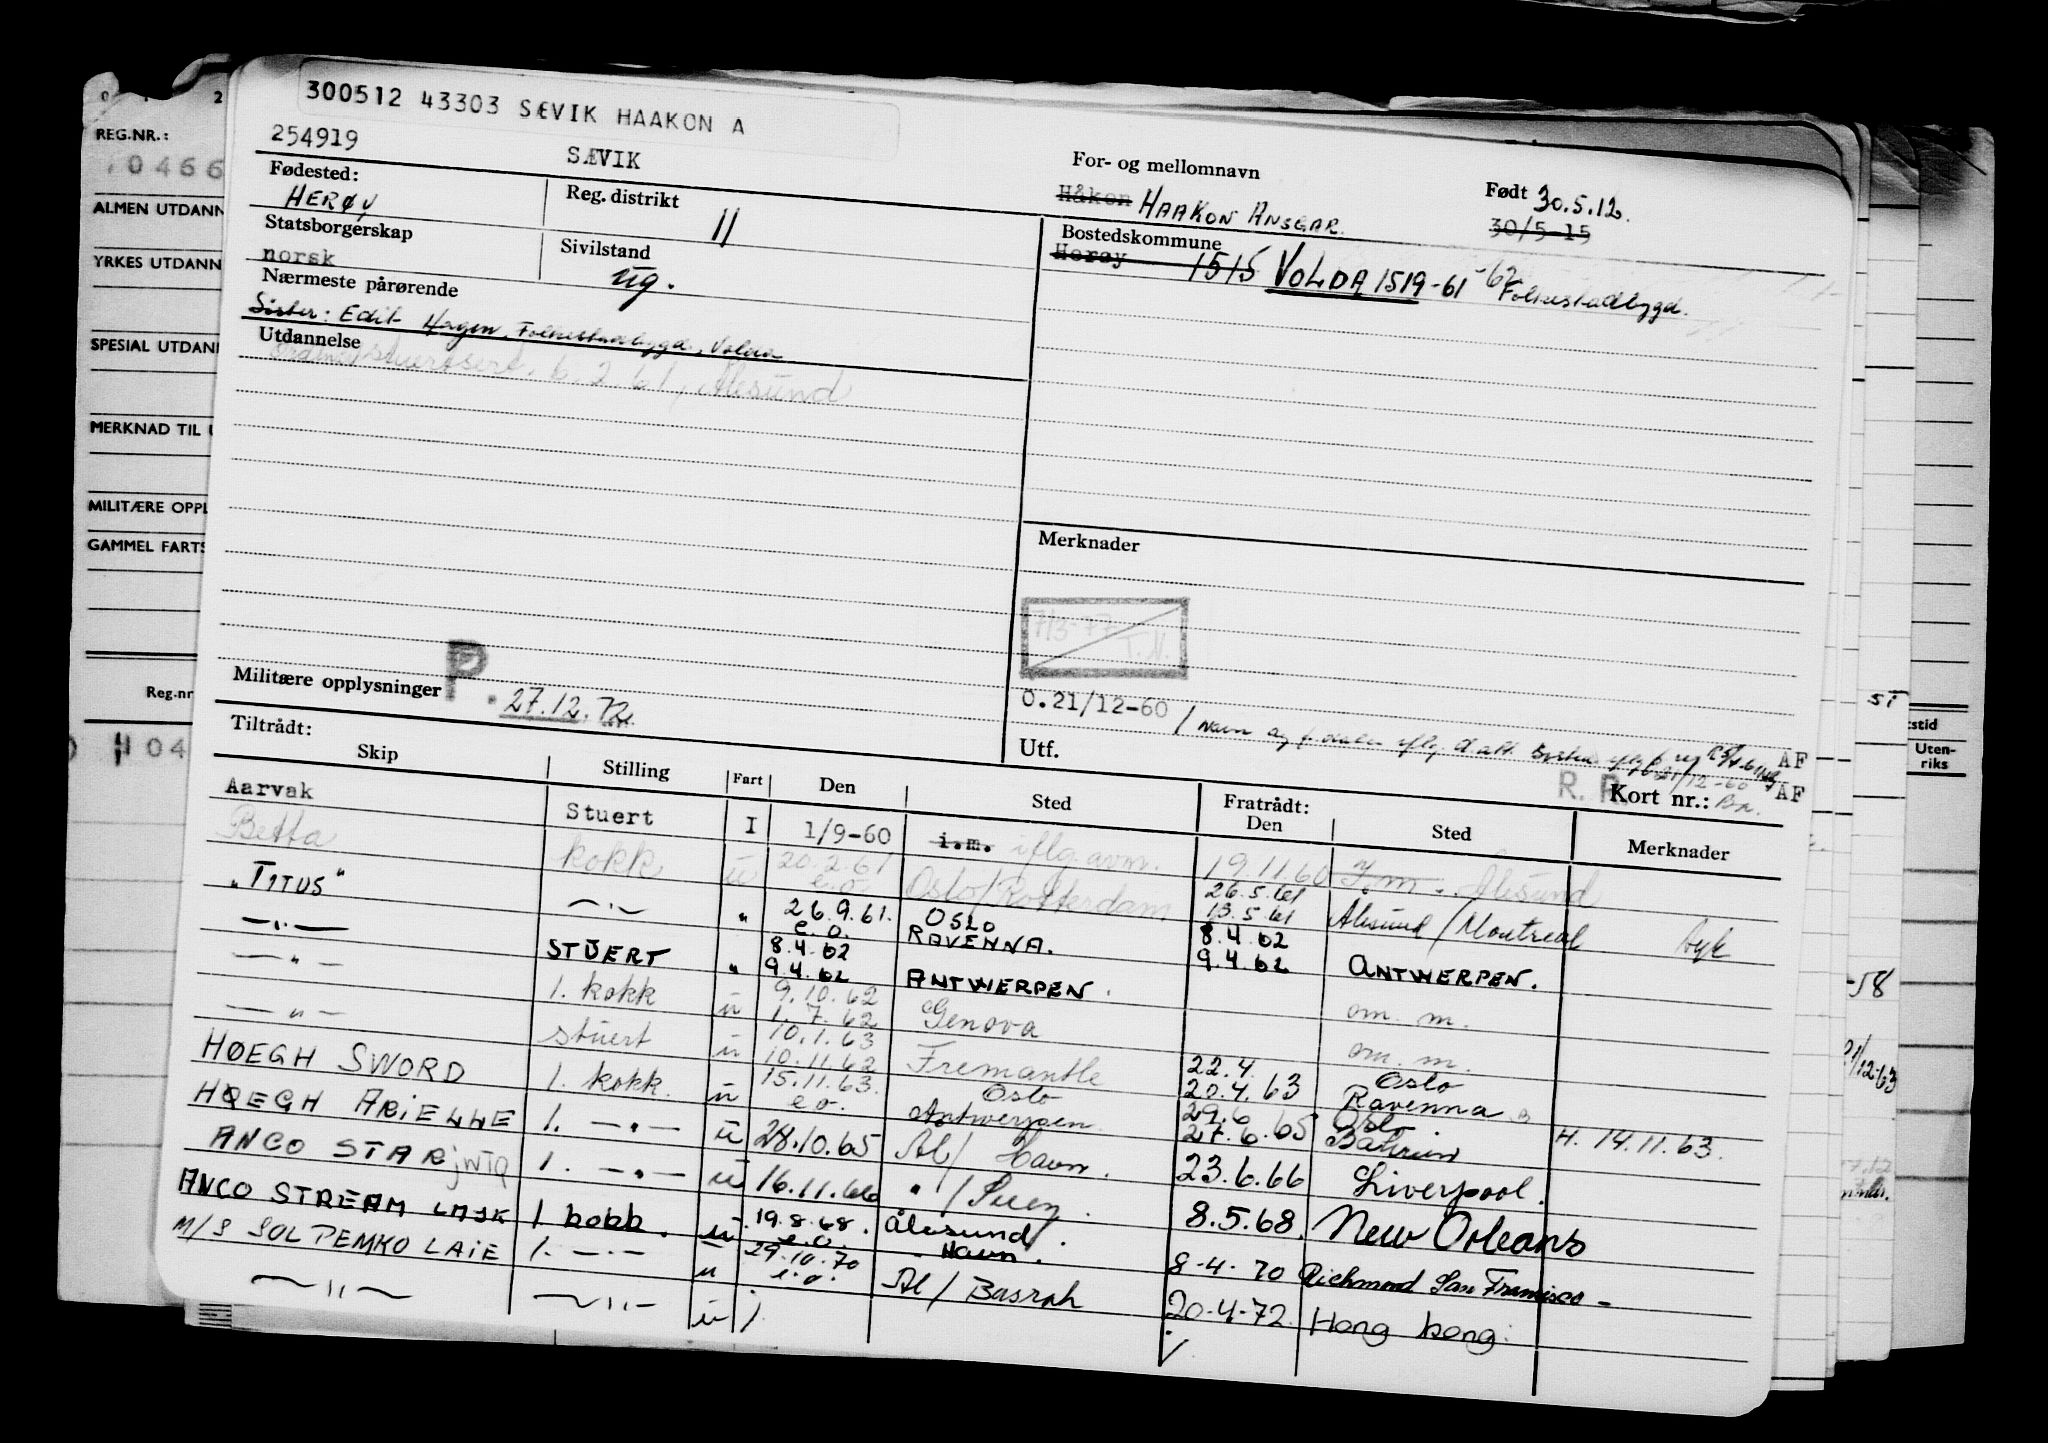 300512 43303 SÆVIK HAAKON A
254919
SÆVIK
For- og mellomnavn
Håkon HAAKON ANSGAR.
Født 30.5.12.
30/5-15
Fødested:
HERØY
Reg. distrikt
11
Statsborgerskap
norsk
Sivilstand
ug.
Bostedskommune
Herøy 1515 VOLDA 1519-61 -62 Folkestadbygd.
Nærmeste pårørende
Søster: Edit Hagen, Folkestadbygd, Volda
Utdannelse
stuertsert. 6.2.61, Ålesund
Merknader
7/3-77
T.N.
Militære opplysninger
P. 27.12.72.
0.21/12-60 / Navn og f. dato
AF
Utf.
R. R.
21/12-60 AF
Kort nr.:
Tiltrådt:
Skip
Stilling
Fart
Den
Sted
Fratrådt:
Den
Sted
Merknader
Aarvak Stuert I 1/9-60 i.m. iflg. avm. 19.11.60 Ålesund
Betta kokk u 20.2.61 e.o. Oslo/Rotterdam 26.5.61 13.5.61 Ålesund/Montreal syk
"TITUS" —"— " 26.9.61. e.o. OSLO RAVENNA. 8.4.62 9.4.62 ANTWERPEN.
—"— STUERT " 8.4.62 9.4.62 ANTWERPEN. om. m.
—"— 1. kokk u 9.10.62 1.7.62 Genova om. m.
—"— stuert u 10.1.63 10.11.62 Fremantle 22.4. 20.4.63 Oslo Ravenna
HØEGH SWORD 1. kokk. u 15.11.63. e.o. Oslo Antwerpen 29.6 27.6.65 Oslo Bahrein H. 14.11.63.
HØEGH ARIELLE 1. —"— u 28.10.65 Ål/Havn. 23.6.66 Liverpool.
ANCO STAR JWTQ 1. —"— u 16.11.66 "/Suez. 8.5.68. New Orleans
ANCO STREAM LMJK 1. kokk. u 19.8.68. e.o. Ålesund. Havn. 8-4-70 Richmond San Francisco -
M/S SOLDEMKO LAIE 1. —"— u 29.10.70 e.o. Ål/Basrah 20-4-72. Hong kong.
—"— —"— u
REG.NR.:
0466
ALMEN UTDANN
YRKES UTDANN
SPESIAL UTDAN
MERKNAD TIL U
MILITÆRE OPPL
GAMMEL FARTS
Reg.nr
H 04
ST
stid
Uten-
riks
-58
21/12-63